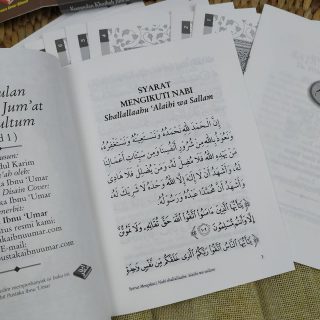 Kumpulan Khutbah Jum'at
ulan
Jum'at
ultum
d 1)
usun:
dul Karim
ah oleh:
a Ibnu 'Umar
Disain Cover:
a Ibnu 'Umar
erbit:
a Ibnu 'Umar
tus resmi kami:
akaibnuumar.com
ustakaibnuumar.com
memperbanyak isi buku ini
Pustaka Ibnu 'Umar
SYARAT
MENGIKUTI NABI
Shallallaahu 'Alaihi wa Sallam
إِنَّ الْحَمْدَ لِلَّهِ نَحْمَدُهُ وَنَسْتَعِيْنُهُ وَنَسْتَغْفِرُهُ،
وَنَعُوْذُ بِاللهِ مِنْ شُرُوْرِ أَنْفُسِنَا وَمِنْ سَيِّئَاتِ أَعْمَالِنَا
مَنْ يَهْدِهِ اللهُ فَلَا مُضِلَّ لَهُ، وَمَنْ يُضْلِلْ فَلَا هَادِيَ
لَهُ، وَأَشْهَدُ أَنْ لَا إِلٰهَ إِلَّا اللهُ وَحْدَهُ لَا شَرِيْكَ لَهُ،
وَأَشْهَدُ أَنَّ مُحَمَّدًا عَبْدُهُ وَرَسُوْلُهُ.
﴿يَٰٓأَيُّهَا ٱلَّذِينَ ءَامَنُوا۟ ٱتَّقُوا۟ ٱللَّهَ حَقَّ تُقَاتِهِۦ وَلَا تَمُوتُنَّ
إِلَّا وَأَنتُم مُّسْلِمُونَ ١٠٢﴾
﴿يَٰٓأَيُّهَا ٱلنَّاسُ ٱتَّقُوا۟ رَبَّكُمُ ٱلَّذِى خَلَقَكُم مِّن نَّفْسٍ وَٰحِدَةٍ
Syarat Mengikuti Nabi shallallaahu 'alaihi wa sallam